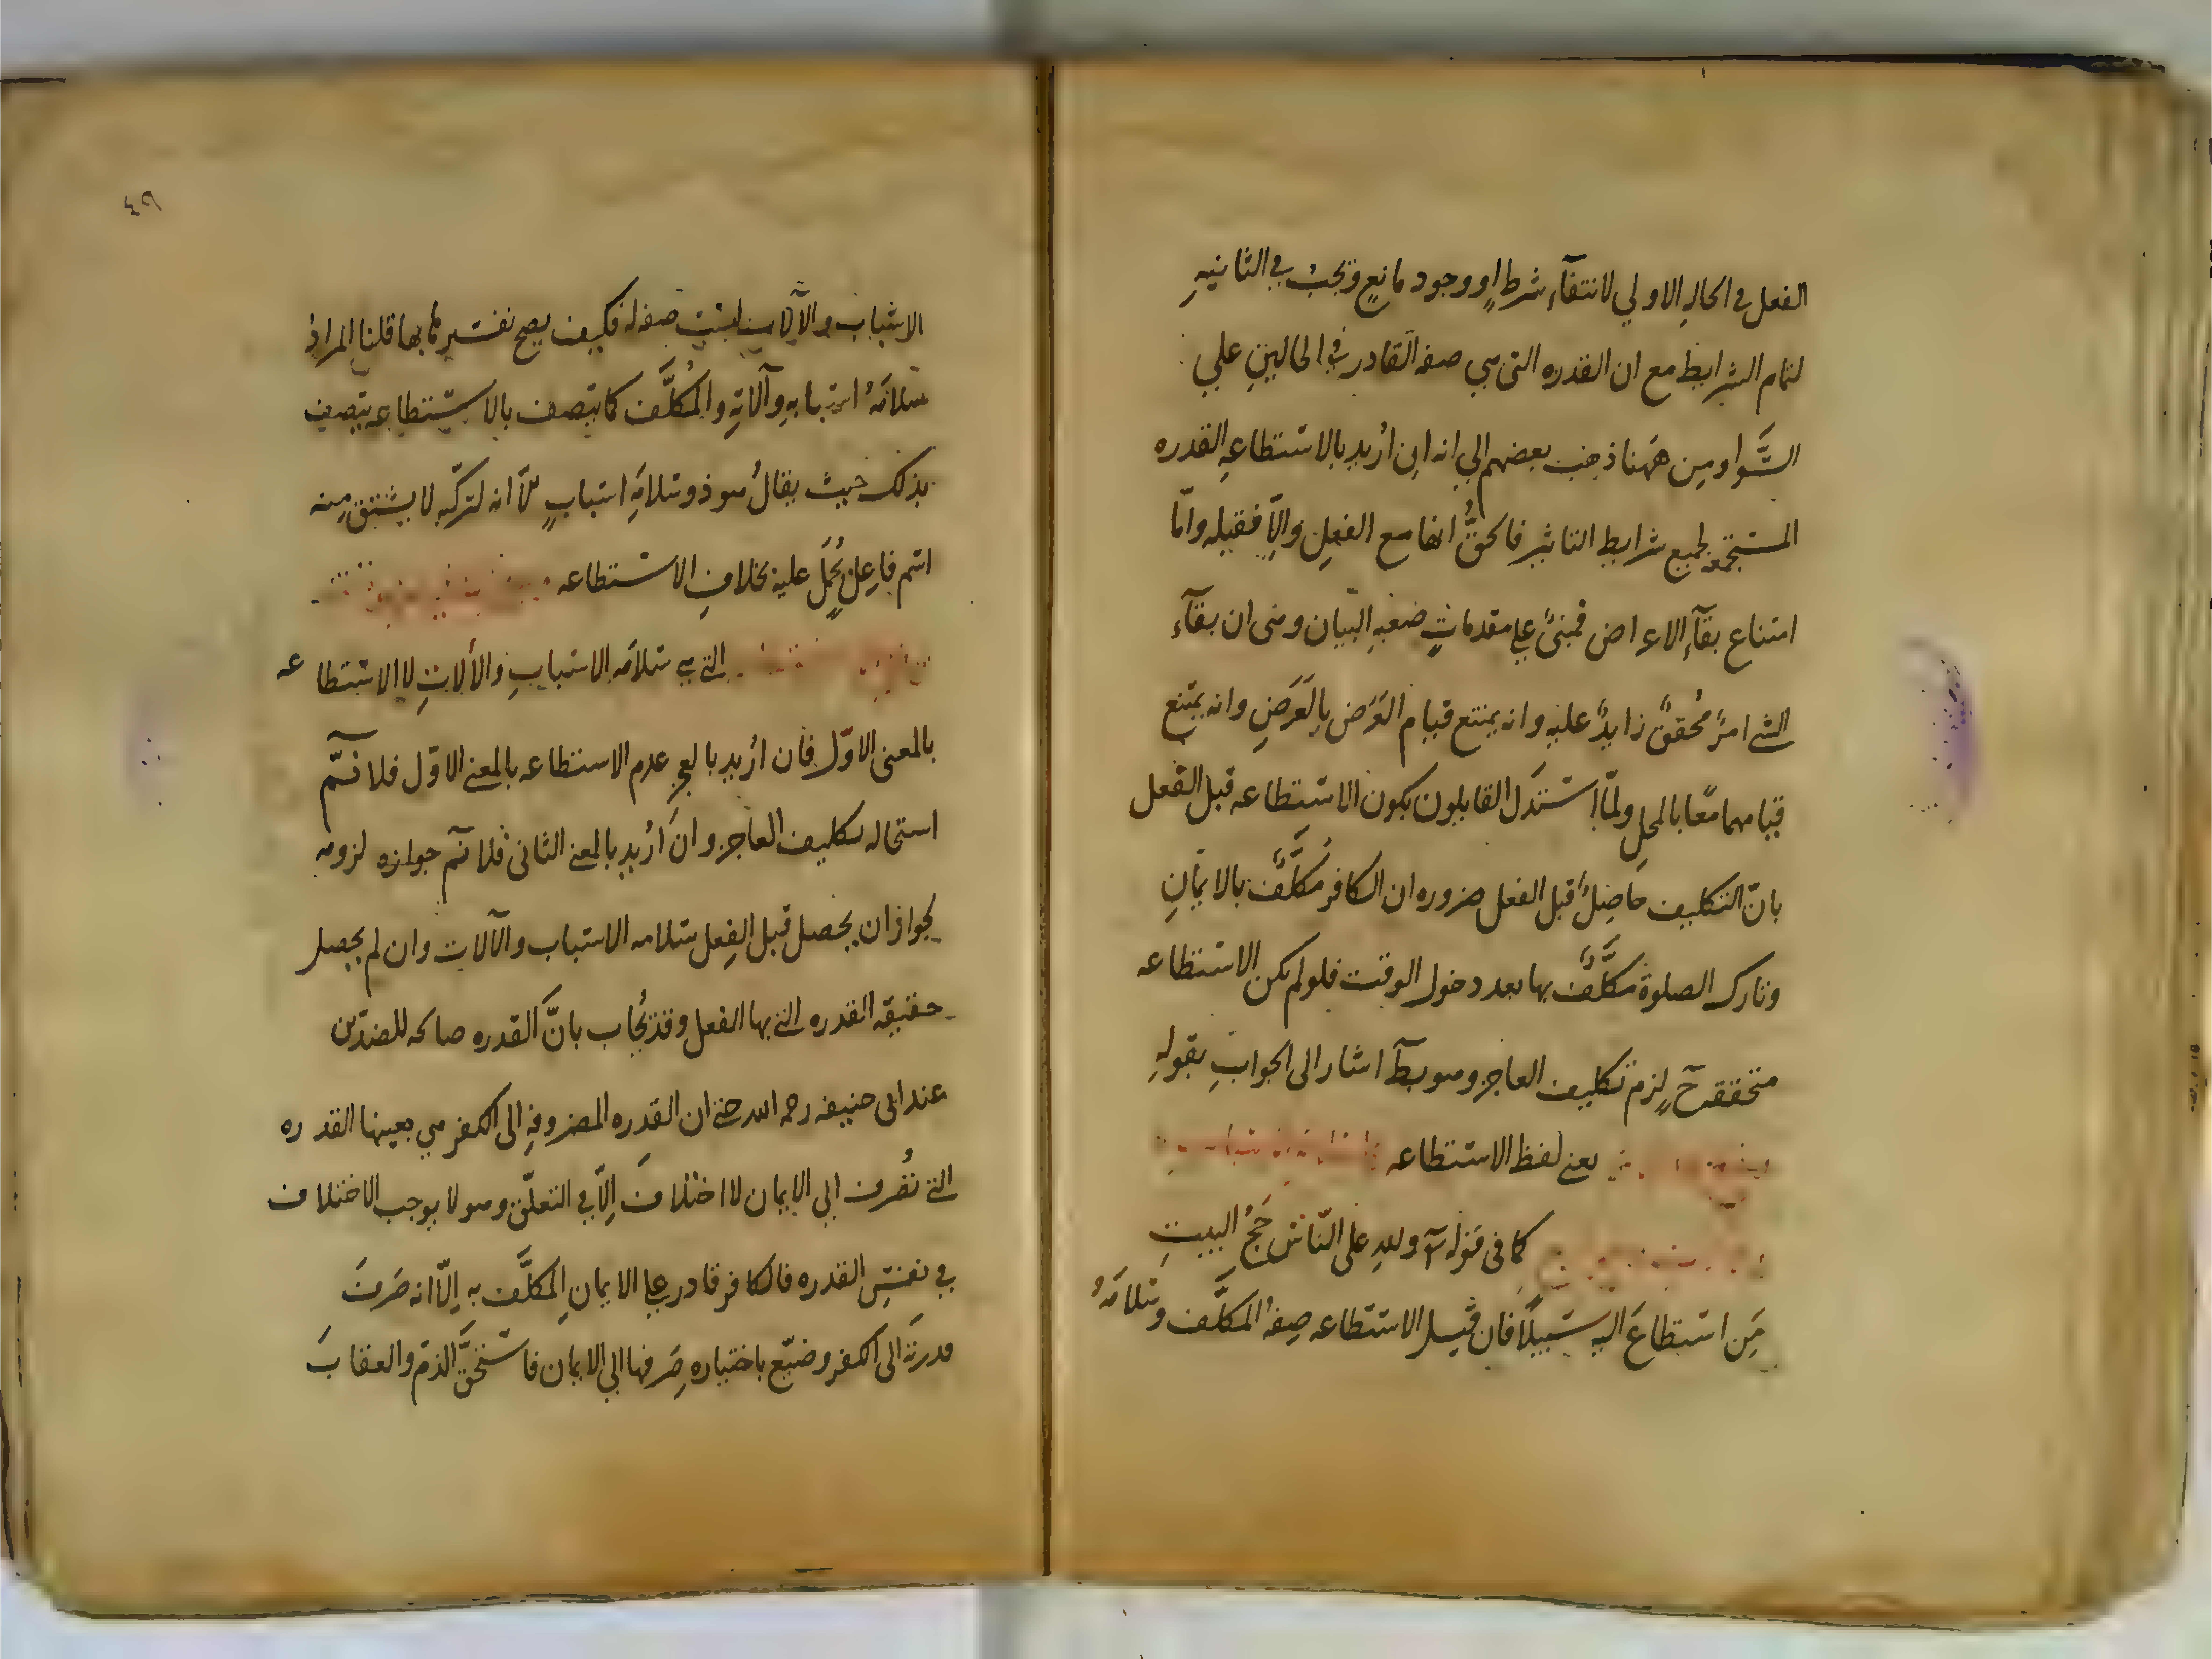 الفعل في الحالِ الاولي لانتفآء شرطٍ او وجود مانعٍ ويجبُ في الثانيهِ
لتمام الشرايط مع ان القدره التى هي صفه القادر في الحالينِ علي
السَّوا ومِن هَهنا ذهب بعضهم الي انه ان اُريد بالاستطاعهِ القدره
المستجمعه لجميع شرايط التاثير فالحقُّ انها مع الفعلِ والاّ فقبله وامّا
امتناع بقآءِ الاعراض فمبنىٌّ على مقدماتٍ صعبهِ البيان وهى ان بقآء
الشى امرٌ مُحققٌ زايدٌ عليه وانه يمتنع قيام العَرَض بالعَرَضِ وانه يمتنع
قيامهما معًا بالمحلِ ولمّا استدَل القايلون بكون الاستطاعه قبل الفعل
بانّ التكليف حاصِلٌ قبل الفعل ضروره ان الكافر مُكلَّفٌ بالايمانِ
وتارك الصلوة مكلَّفٌ بها بعد دخول الوقت فلو لم تكن الاستطاعه
متحققه حٓ لزم تكليف العاجز وهو بطٓ اشار الى الجوابِ بقولهِ
يعنى لفظ الاستطاعه
كما فى قوله تٓع ولله على النّاسِ حَجُّ البيتِ
مَنِ استطاعَ اليه سَبيلًا فان قيل الاستطاعه صِفهُ المكلَّف وسَلامَهُ
٤٩
الاسباب والآلات ليست صفه له فكيف يصح تفسيرها بها قلنا المرادُ
سَلامَهُ اسبابهِ وآلاتهِ والمُكلَّف كما يتصف بالاستطاعه يتصف
بذلك حيث يقالُ هو ذو سَلامَهِ اسبابٍ الاّ انه لتركّبه لا يشتق منه
اسم فاعلٍ يُحمَل عليه بخلافِ الاستطاعه
التي هي سَلامَه الاسبابِ والآلاتِ لا الاستطاعه
بالمعنى الاوّل فان اُريد بالعجز عدم الاستطاعه بالمعنى الاوّل فلا نسَلّم
استحاله تكليف العاجز وان اُريد بالمعنى الثانى فلا نسلّم جوازه لزومه
لجواز ان يحصل قبل الفعل سَلامه الاسباب والآلات وان لم يحصل
حقيقه القدره التى بها الفعل وقد يُجاب بانّ القدره صالحه للضدّين
عند ابى حنيفه رحمه الله حتى ان القدره المصروفهِ الى الكفر هي بعينها القدره
التى تُصرف الي الايمان لا اختلافَ الاّ في التعلّق وهو لا يوجب الاختلاف
في نفسِ القدره فالكافر قادر على الايمانِ المكلَّف به اِلاّ انه صَرفَ
قدرتَه الى الكفر وضيّع باختياره صَرفها الي الايمان فاستحقَّ الذمّ والعقابَ